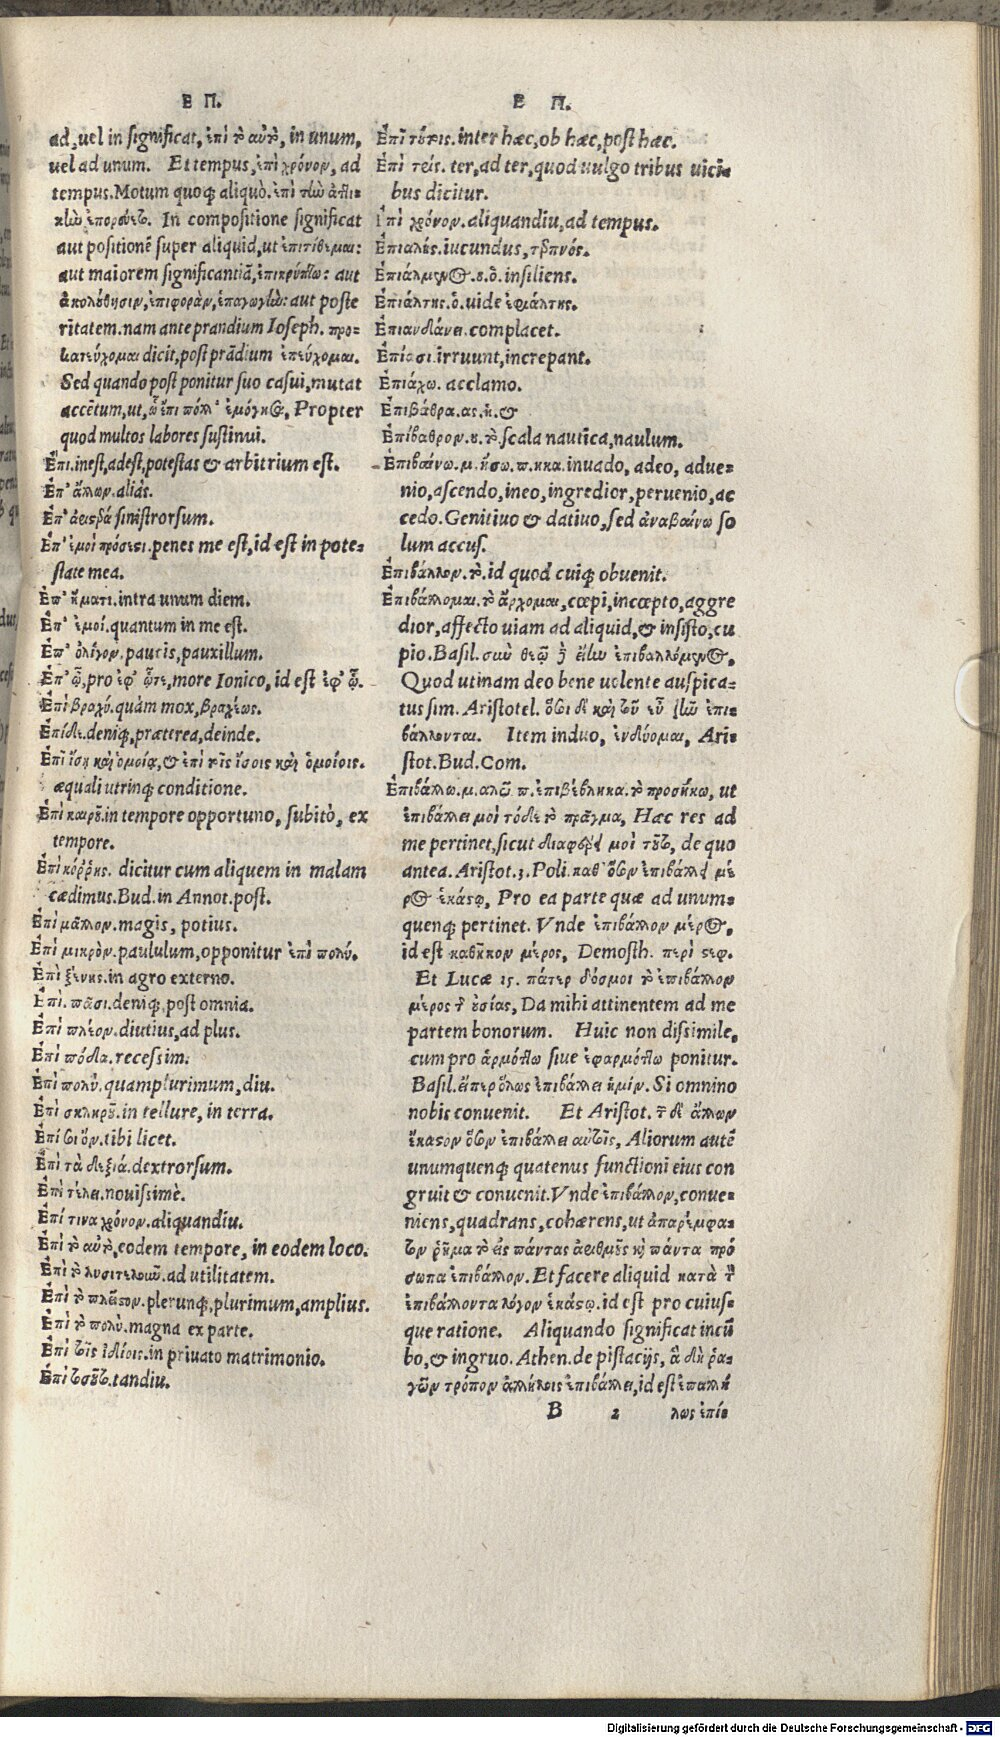 Ε Π.
ad, uel in significat, ἐπὶ τὸ αὐτὸ, in unum,
uel ad unum. Et tempus, ἐπὶ χρόνον, ad
tempus. Motum quoq; aliquò. ἐπὶ τὴν ἀττι-
κὴν ἐπορεύετο. In compositione significat
aut positionẽ super aliquid, ut ἐπιτίθεμαι:
aut maiorem significantiã, ἐπικρύπτω: aut
ἀκολούθησιν, ἐπιφορὰν, ἐπαγωγὴν: aut poste
ritatem. nam ante prandium Ioseph. προ-
κατεύχομαι dicit, post prãdium ἐπεύχομαι.
Sed quando post ponitur suo casui, mutat
accẽtum, ut, ᾧ ἔπι πόλλ' ἐμόγησα, Propter
quod multos labores sustinui.
Ἔπι. inest, adest, potestas & arbitrium est.
Ἐπ' ἄλλων. aliàs.
Ἐπ' ἀριστερά sinistrorsum.
Ἐπ' ἐμοὶ πρόσεστι. penes me est, id est in pote-
state mea.
Ἐπ' ἤματι. intra unum diem.
Ἐπ' ἐμοί. quantum in me est.
Ἐπ' ὀλίγον. paucis, pauxillum.
Ἐπ' ᾧ, pro ἐφ' ᾧτε, more Ionico, id est ἐφ' ᾧ.
Ἐπὶ βραχύ. quàm mox, βραχέως.
Ἐπίδε. deniq;, præterea, deinde.
Ἐπὶ ἴσῃ καὶ ὁμοίᾳ, & ἐπὶ τοῖς ἴσοις καὶ ὁμοίοις.
æquali utrinq; conditione.
Ἐπὶ καιροῦ. in tempore opportuno, subitò, ex
tempore.
Ἐπὶ κόῤῥης. dicitur cum aliquem in malam
cædimus. Bud. in Annot. post.
Ἐπὶ μᾶλλον. magis, potius.
Ἐπὶ μικρὸν. paululum, opponitur ἐπὶ πολύ.
Ἐπὶ ξένης. in agro externo.
Ἐπὶ. πᾶσι. deniq; post omnia.
Ἐπὶ πλέον. diutius, ad plus.
Ἐπὶ πόδα. recessim.
Ἐπὶ πολύ. quamplurimum, diu.
Ἐπὶ σκληροῦ. in tellure, in terra.
Ἐπί σοι ὄν. tibi licet.
Ἐπὶ τὰ δεξιά. dextrorsum.
Ἐπὶ τέλει. nouissimè.
Ἐπί τινα χρόνον. aliquandiu.
Ἐπὶ τὸ αὐτὸ, eodem tempore, in eodem loco.
Ἐπὶ τὸ λυσιτελοῦν. ad utilitatem.
Ἐπὶ τὸ πλεῖστον. plerunq;, plurimum, amplius.
Ἐπὶ τὸ πολὺ. magna ex parte.
Ἐπὶ τοῖς ἰδίοις. in priuato matrimonio.
Ἐπὶ τοσοῦτο. tandiu.
Ε Π.
Ἐπὶ τούτοις. inter hæc, ob hæc, post hæc.
Ἐπὶ τρίς. ter, ad ter, quod uulgo tribus uici-
bus dicitur.
Ἐπὶ χρόνον. aliquandiu, ad tempus.
Ἐπιαλής. iucundus, τερπνός.
Ἐπιάλμενος. ου. ὁ. insiliens.
Ἐπιάλτης. ὁ. uide ἐφιάλτης.
Ἐπιανδάνει. complacet.
Ἐπίασι. irruunt, increpant.
Ἐπιάχω. acclamo.
Ἐπιβάθρα. ας. ἡ. &
Ἐπίβαθρον. ου. τὸ scala nautica, naulum.
Ἐπιβαίνω. μ. ήσω. π. ηκα. inuado, adeo, adue-
nio, ascendo, ineo, ingredior, peruenio, ac
cedo. Genitiuo & datiuo, sed ἀναβαίνω so
lum accus.
Ἐπιβάλλον. τὸ. id quod cuiq; obuenit.
Ἐπιβάλλομαι. τὸ ἄρχομαι, cœpi, incœpto, aggre
dior, affecto uiam ad aliquid, & insisto, cu
pio. Basil. σὺν θεῷ εἴην ἐπιβαλλόμενος.
Quod utinam deo bene uolente auspica-
tus sim. Aristotel. ὅσοι δὲ καὶ τοῦ εὖ ζῆν ἐπι-
βάλλονται. Item induo, ἐνδύομαι, Ari-
stot. Bud. Com.
Ἐπιβάλλω. μ. αλῶ π. ἐπιβέβληκα. τὸ προσήκω, ut
ἐπιβάλλει μοὶ τόδε τὸ πρᾶγμα, Hæc res ad
me pertinet, sicut διαφέρει μοὶ τοῦτο, de quo
antea. Aristot. 3. Poli. καθ' ὅσον ἐπιβάλλει μέ
ρος ἑκάστῳ, Pro ea parte quæ ad unum-
quenq; pertinet. Vnde ἐπιβάλλον μέρος,
id est καθῆκον μέρος, Demosth. περὶ στεφ.
Et Lucæ 15. πάτερ δόσμοι τὸ ἐπιβάλλον
μέρος τῆς οὐσίας, Da mihi attinentem ad me
partem bonorum. Huic non dissimile,
cum pro ἁρμόττω siue ἐφαρμόττω ponitur.
Basil. εἴπερ ὅλως ἐπιβάλλει ἡμῖν. Si omnino
nobis conuenit. Et Aristot. τῶν δὲ ἄλλων
ἕκαστον ὅσον ἐπιβάλλει αὐτοῖς, Aliorum autẽ
unumquenq; quatenus functioni eius con
gruit & conuenit. Vnde ἐπιβάλλον, conue-
niens, quadrans, cohærens, ut ἀπαρέμφα-
τον ῥῆμα τὸ εἰς πάντας ἀριθμοὺς καὶ πάντα πρό
σωπα ἐπιβάλλον. Et facere aliquid κατὰ τὸν
ἐπιβάλλοντα λόγον ἑκάστῳ. id est pro cuius-
que ratione. Aliquando significat incũ
bo, & ingruo. Athen. de pistacijs, ἃ δὴ ῥα-
γῶν τρόπον ἀλλήλοις ἐπιβάλλει, id est ἐπαλλή
B 2 λως ἐπί-
Digitalisierung gefördert durch die Deutsche Forschungsgemeinschaft - DFG